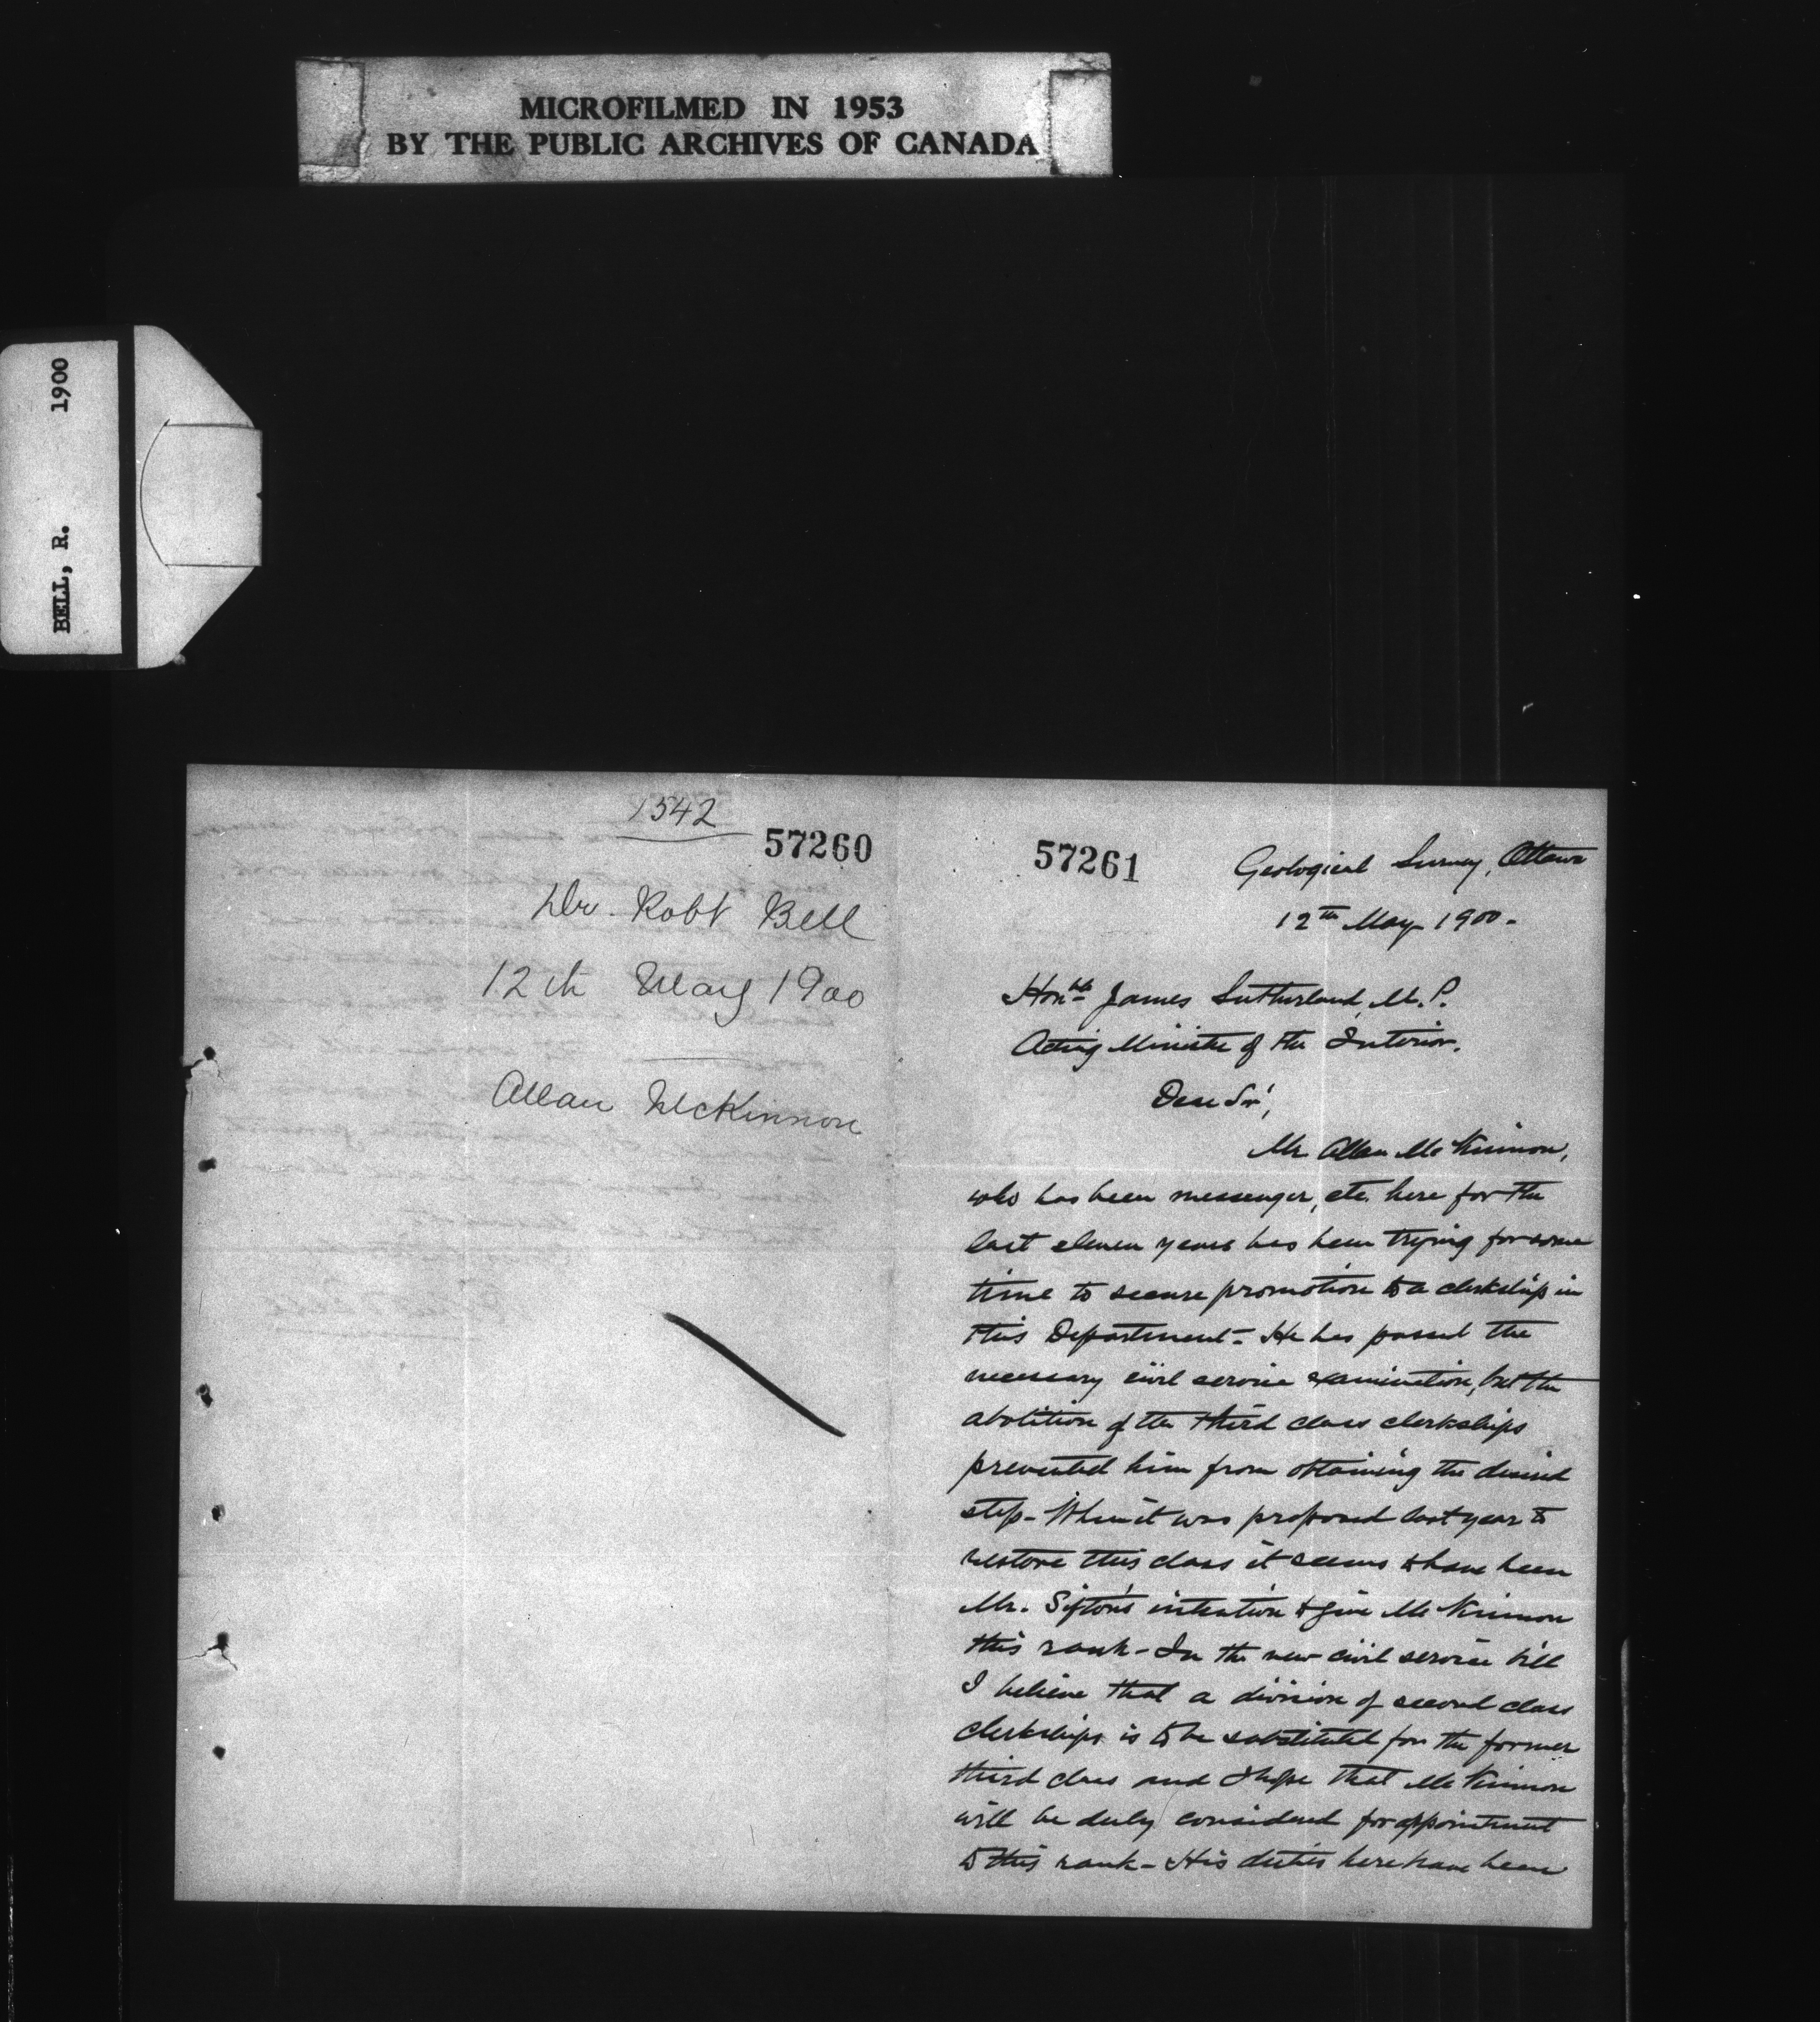 MICROFILMED IN 1953
BY THE PUBLIC ARCHIVES OF CANADA
BELL, R. 1900
1542
57260
Dr. Robt Bell
12th May 1900
Allan McKinnon
57261
Geological Survey, Ottawa
12th May 1900.
Honble James Sutherland, M.P.
Acting Minister of the Interior.
Dear Sir,
Mr Allan McKinnon,
who has been messenger, etc. here for the
last eleven years has been trying for some
time to secure promotion to a clerkship in
this Department - He has passed the
necessary civil service examination, but the
abolition of the third class clerkships
prevented him from obtaining the desired
step - When it was proposed last year to
restore this class it seems to have been
Mr. Sifton's intention to give McKinnon
this rank - In the new civil service bill
I believe that a division of second class
clerkships is to be substituted for the former
third class and I hope that McKinnon
will be duly considered for appointment
to this rank - His duties here have been